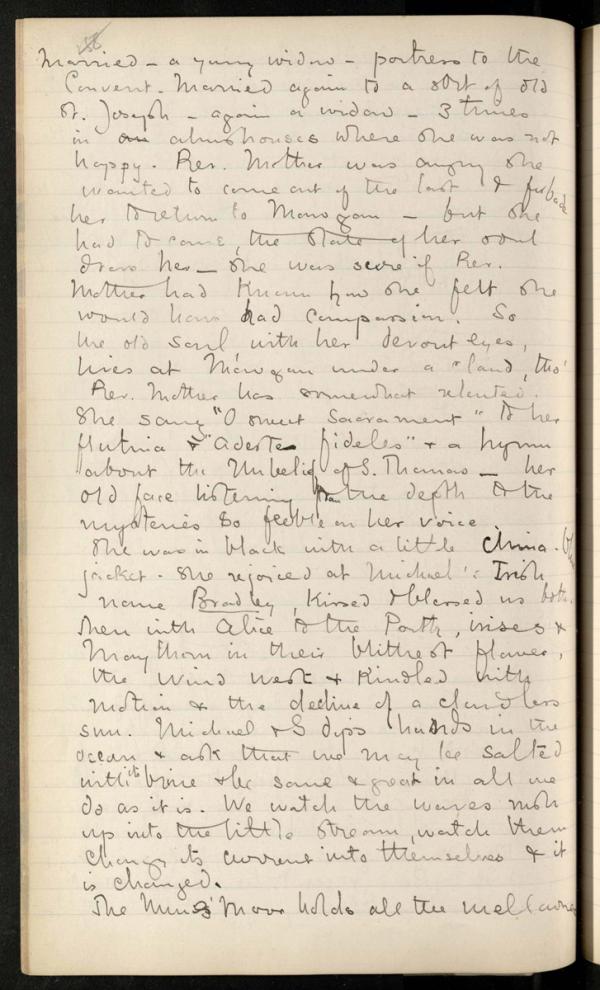 Married – a young widow – portress to the
Convent. Married again to a sort of old
St. Joseph – again a widow – 3 times
in an almshouses where she was not
happy. Rev. Mother was angry she
wanted to come out of the last & forbade
her to return to – but she
had to come, the state of her soul
drew her – she was sure if Rev.
Mother had known how she felt she
would have had compassion. So
the old soul with her devout eyes,
lives at under a land, tho'
Rev. Mother has somewhat relented.
She sang "O Sweet Sacrament" to her
& "Adeste fideles" & a hymn
about the Unbelief of S. Thomas – her
old face listening the depth to the
mysteries so feeble on her voice.
She was in black with a little china-
jacket. She rejoiced at Michael's Irish
name Bradley, kissed & blessed us both.
Then with Alice to the Path, irises &
May thorn in their blithest flower,
the wind west & kindled with
motion & the decline of a cloudless
sun. Michael & S dips hands in the
ocean & ask that we may be salted
with its brine & be sane & great in all we
do as it is. We watch the waves rush
up into the little stream, watch them
change its current into themselves & it
is changed.
The Nuns' Moor holds all the